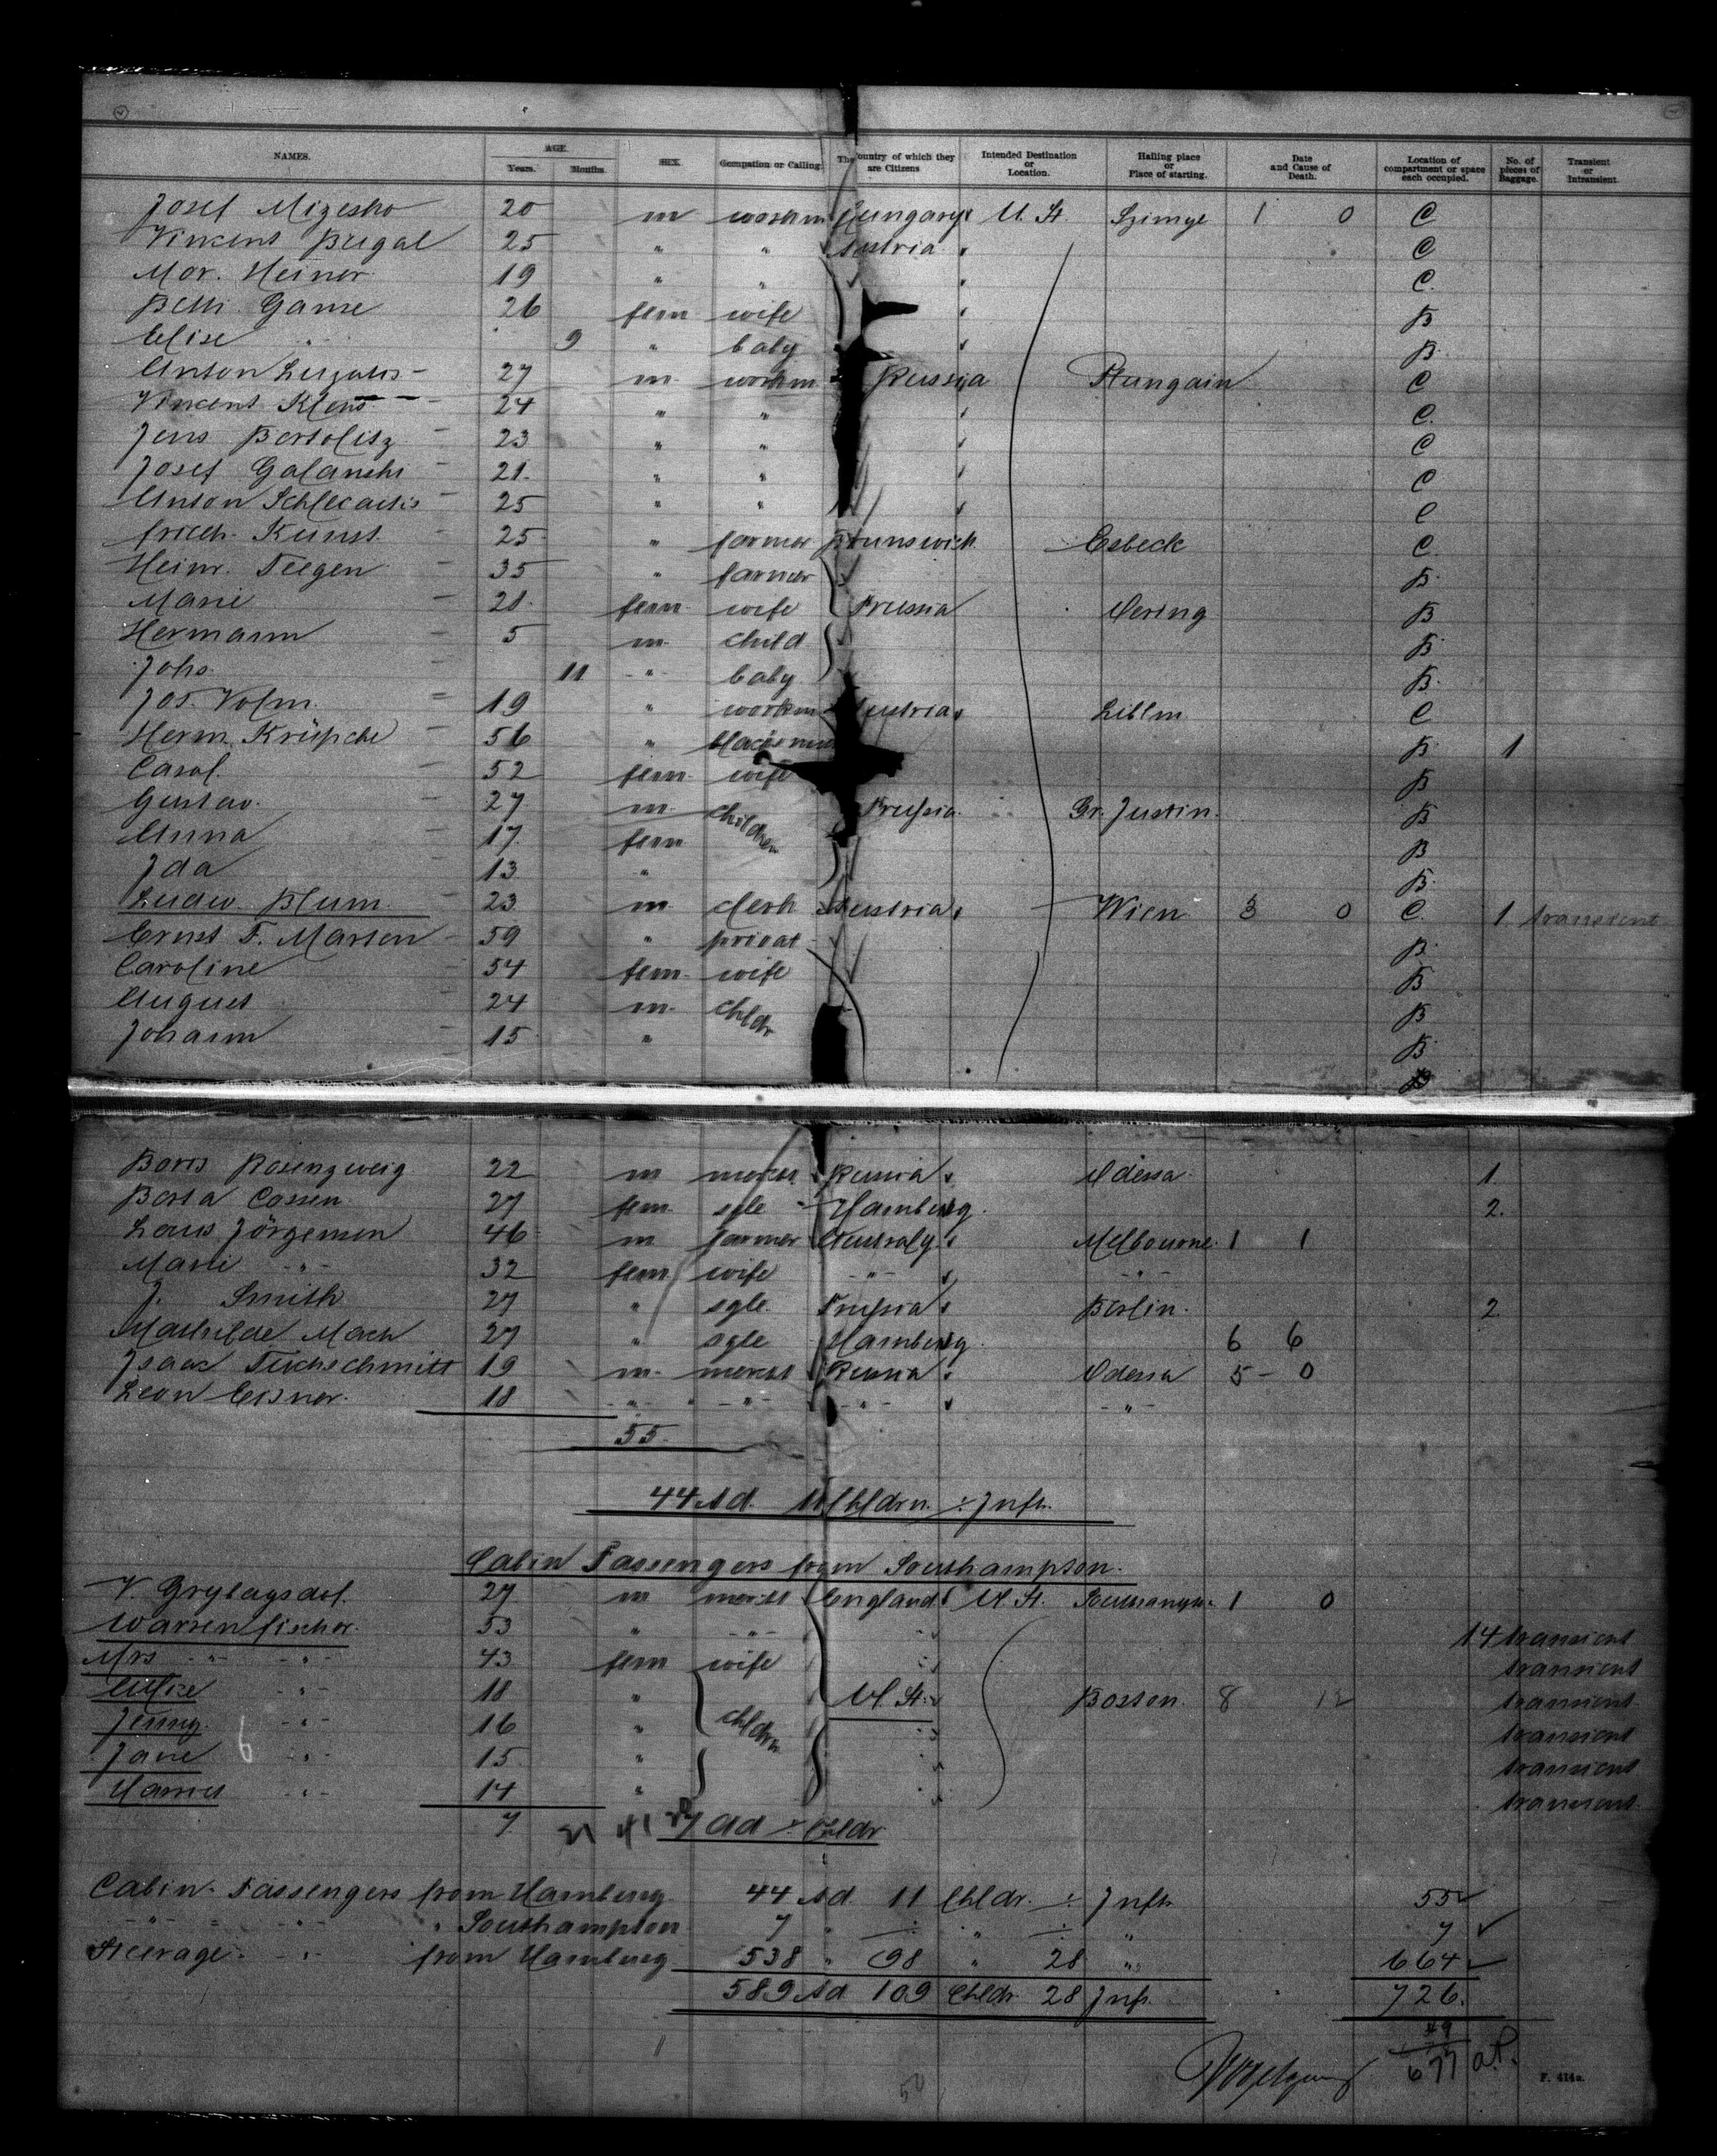 NAMES. AGE. Years. Months. SEX. Occupation or Calling. The Country of which they are Citizens Intended Destination or Location. Hailing place or Place of starting. Date and Cause of Death. Location of compartment or space each occupied. No. of pieces of Baggage. Transient or Intransient.
Josef Mizesko 20 m workm Hungary U. St. 1 0 C
Vincent 25 " " Austria C
Mor. Heiner 19 " " C.
Betti Ganse 26 fem wife B
Elise " 9 " baby B.
Anton 27 m. workm Russia C
Vincent Klens 24 " " C.
Jens Bertolitz 23 " " C
Josef Galanski 21. " " C
Anton 25 " " C
Friedr. Kunst 25 " farmer Brunswick Esbeck C
Heinr. Teegen 35 " farmer B.
Marie 21. fem wife Prussia Oering B
Hermann 5 m. child B.
Johs. 11 " baby B.
Jos. Volm. 19 " workm Austria C
Herm. 56 " B. 1
Carol. 52 fem. wife B
Gustav. 27 m. children Prussia. Gr. Justin. B
Anna 17. fem B
Ida 13. " B.
Ludw. Blum 23 m. clerk Austria Wien 3 0 C. 1 transient
Ernst F. Marten 59 " privat B.
Caroline 54 fem. wife B
August 24 m. chldr B
Johann 15 " B.
Boris Rosenzweig 22 m merch Russia Odessa 1.
Berta Cossen 27 fem. sgle Hamburg. 2.
Laus Jörgensen 46 m farmer Melbourne 1 1
Marie -"- 32 fem wife -"- -"-
J. Smith 27 " sgle. Prussia Berlin. 2
Mathilde Mach 27 " sgle Hamburg. 6 6
Isaac 19 m. merch Russia Odessa 5 - 0
Leon Eisner. 18 -"- -"- -"- -"-
55.
44 Ad. 11 Chldrn. ÷ Infts.
Cabin Passengers from Southampton.
V. 27 m England U. St. 1 0
Warren Fischer. 53 " -"- 14 transient
Mrs -"- -"- 43 fem wife transient
-"- 18 " chldrn U. St. Boston. 8 12 transient
Jenny. -"- 16 " transient
Jane 6 -"- 15 " transient
Harriet -"- 14 " transient.
7. 7 Ad ÷ Chldr
Cabin-Passengers from Hamburg 44 Ad. 11 Chldr. ÷ Infts. 55
-"- -"- " Southampton 7 " ÷ " ÷ " 7
Steerage -"- from Hamburg 538 " 98 " 28 " 664
589 Ad 109 Chldr. 28 Infts. 726.
49
677 a.P.
50
F. 414a.